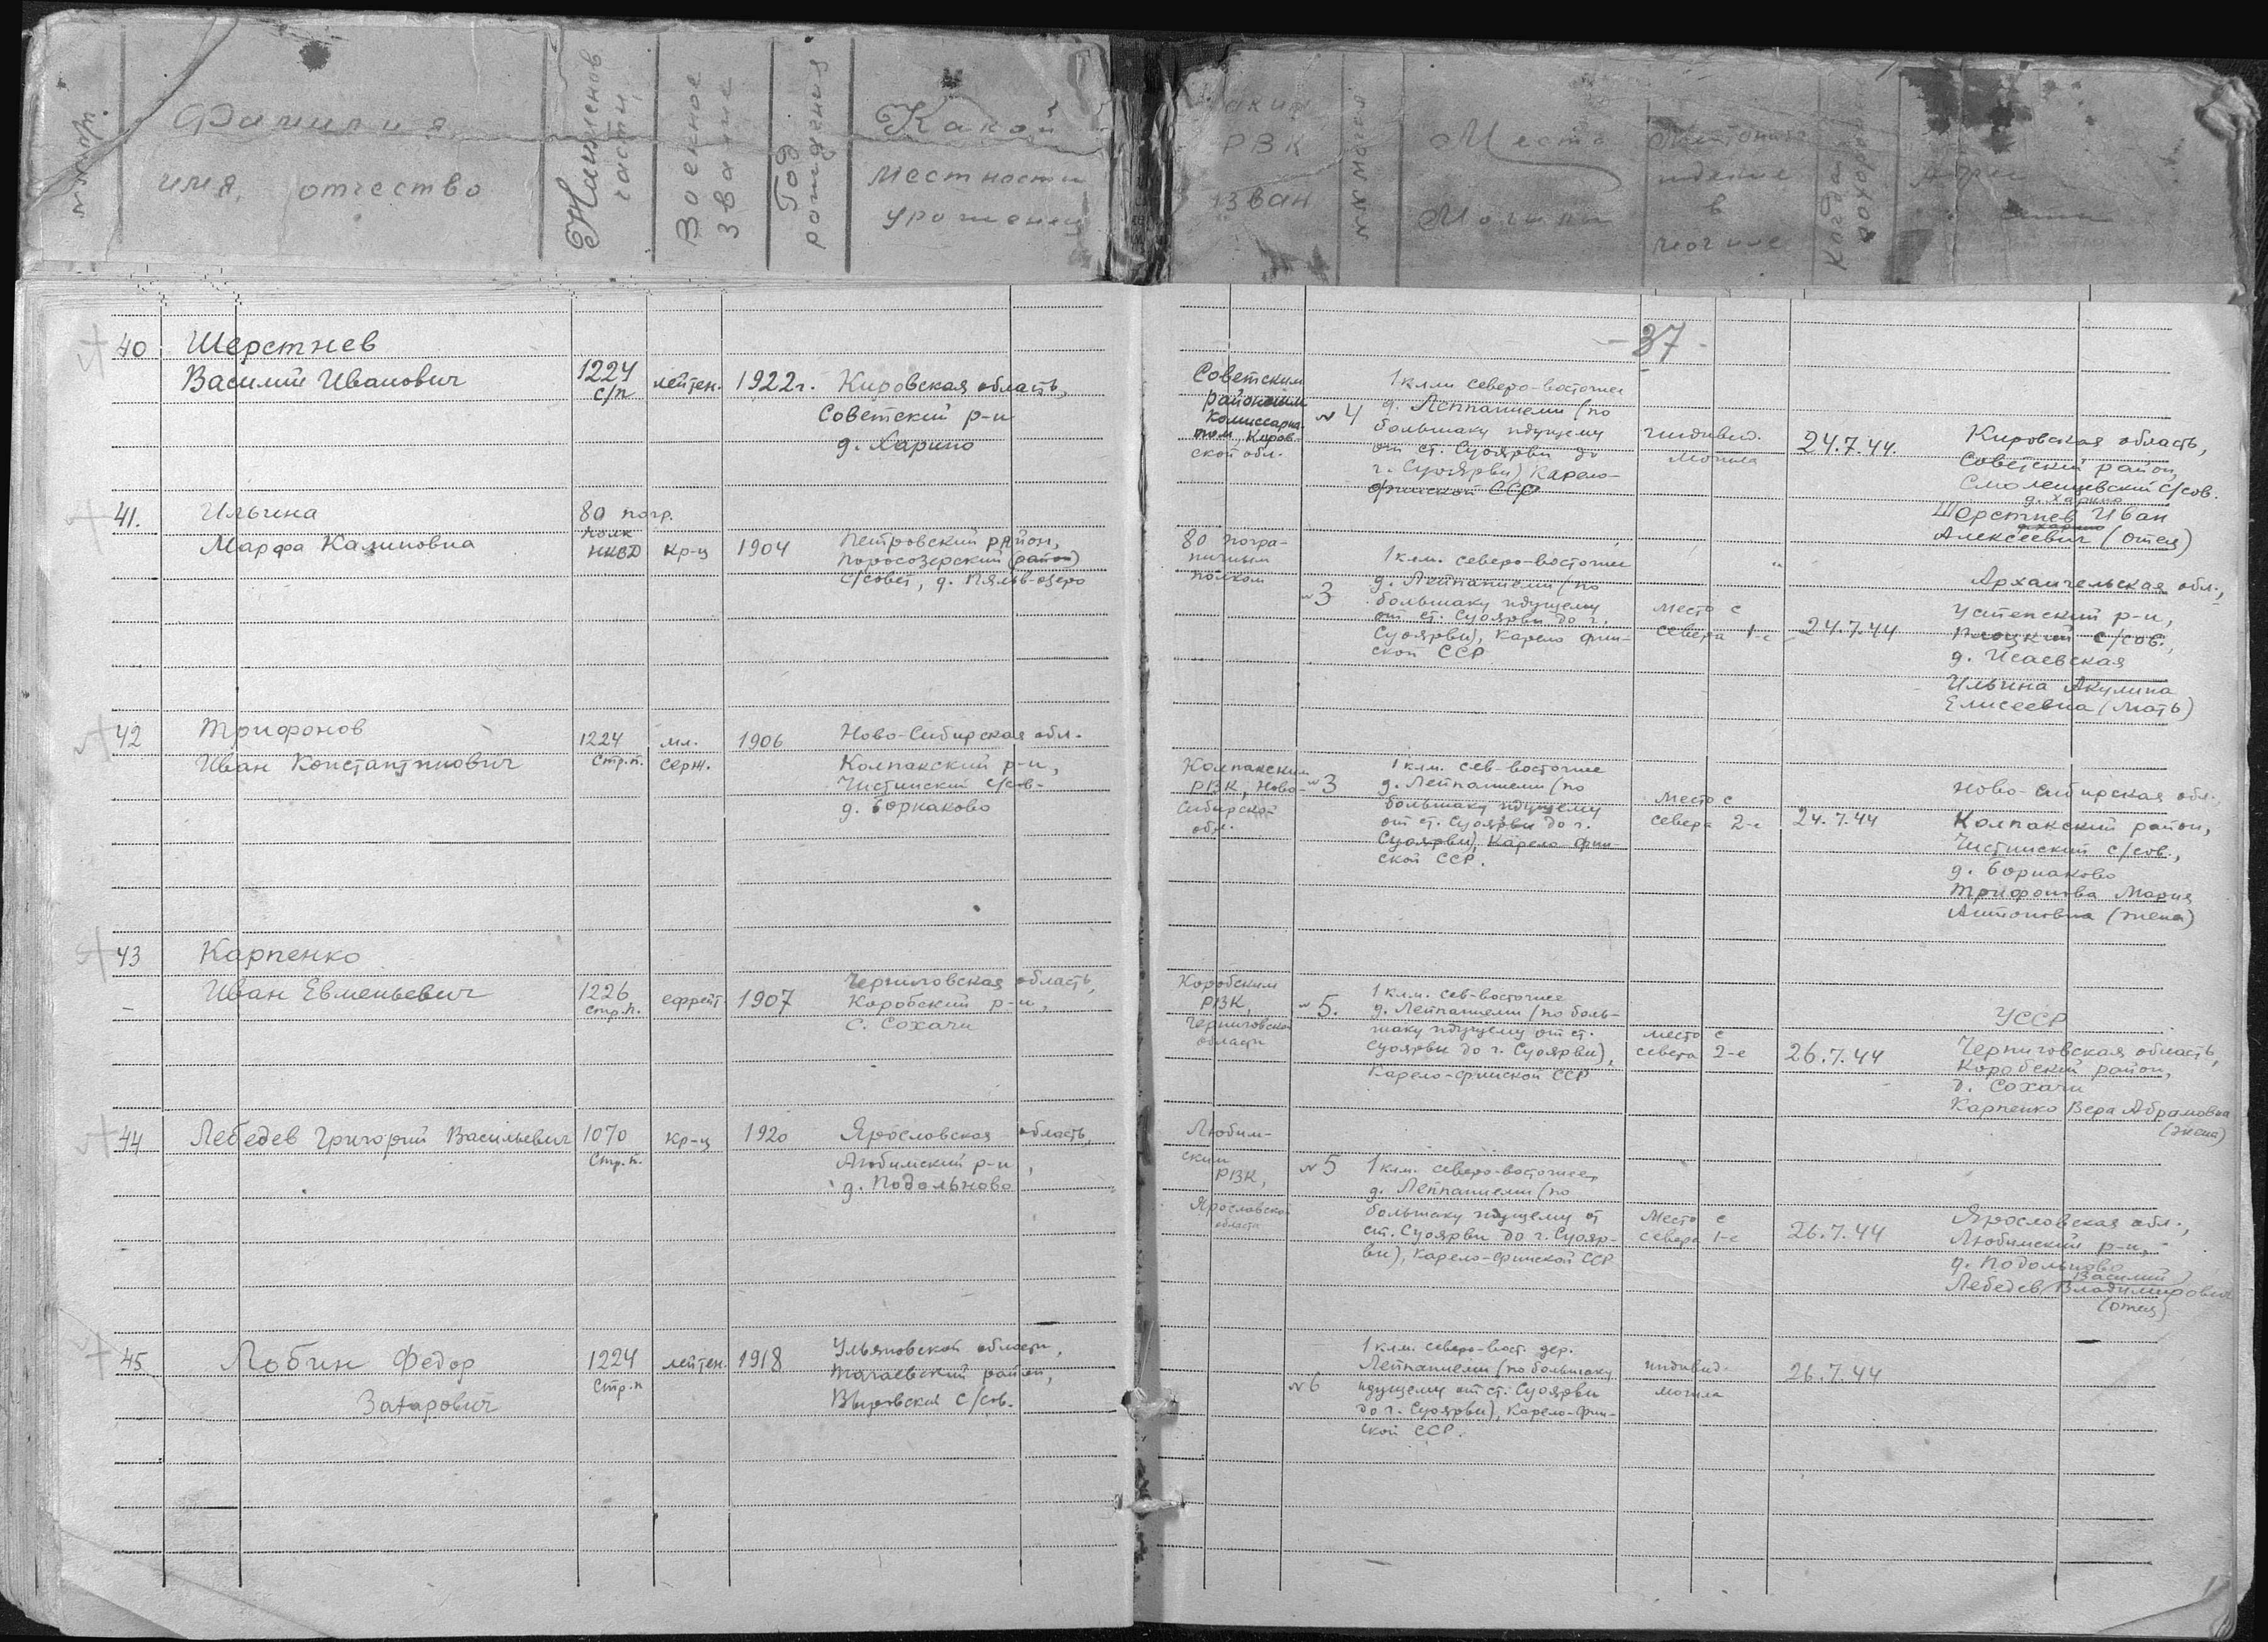 №№ п/п.
Фамилия
имя, отчество
Наименов
части
Военное
звание
Год
рождения
Какой
местности
уроженец
Каким
РВК
изван
№№ Могил
Место
Могилы
в
могиле
Когда
похоронен
-37-
40
Шерстнев
Василий Иванович
1224
с/п
лейтен.
1922г.
Кировская область,
Советский р-н
д. Харино
Советским
районным
Комиссариа-
том, Киров-
ской обл.
№ 4
1 клм северо-восточнее
д. Леппаниеми (по
большаку идущему
от ст. Суоярви до
г. Суоярви) Карело-
Финской ССР
индивид.
могила
24.7.44.
Кировская область,
Советский район,
с/сов.
д. Харино
Шерстнев Иван
Алексеевич (отец)
41.
Ильина
Марфа Калиновна
80 погр.
полк
НКВД
кр-ц
1904
Петровский район,
Поросозерский (район)
с/совет, д. Пяльв-озеро
80 погра-
ничным
полком
№ 3
1 клм. северо-восточнее
д. Леппаниеми (по
большаку идущему
от ст. Суоярви до г.
Суоярви), Карело Фин-
ской ССР
место с
севера 1-е
24.7.44
Архангельская обл.,
р-н,
с/сов.,
д. Исаевская
Ильина Акулина
Елисеевна (мать)
42
Трифонов
Иван Константинович
1224
стр.п.
мл.
серж.
1906
Ново-Сибирская обл.
Колпакский р-н,
Чистинский с/сов.
д. Борнаково
Колпакским
РВК, Ново-
Сибирской
обл.
№ 3
1 клм. сев-восточнее
д. Леппаниеми (по
большаку идущему
от ст. Суоярви до г.
Суоярви), Карело-Фин-
ской ССР.
Место с
севера 2-е
24.7.44
Ново-Сибирская обл.,
Колпакский район,
Чистинский с/сов.,
д. Борнаково
Трифонова Мария
Антоновна (жена)
43
Карпенко
Иван Евменьевич
1226
стр.п.
ефрейт
1907
Черниговская область,
Коробский р-н,
с. Сохачи
Коробским
РВК,
Черниговской
области
№ 5.
1 клм. сев-восточнее
д. Леппаниеми (по боль-
шаку идущему от ст.
Суоярви до г. Суоярви),
Карело-Финской ССР
место с
севера 2-е
26.7.44
УССР
Черниговская область,
Коробский район,
с. Сохачи
Карпенко Вера Абрамовна
(жена)
44
Лебедев Григорий Васильевич
1070
стр.п.
кр-ц
1920
Ярославская область,
Любимский р-н,
д. Подольново
Любим-
ским
РВК,
Ярославской
области
№ 5
1 клм. северо-восточнее
д. Леппаниеми (по
большаку идущему от
ст. Суоярви до г. Суояр-
ви), Карело-Финской ССР
Место с
севера 1-е
26.7.44
Ярославская обл.,
Любимский р-н,
д. Подольново
Василий
Лебедев Владимирович
(отец)
45
Лобин Федор
Захарович
1224
стр.п
лейтен.
1918
Ульяновской области,
Тагаевский район,
Выровский с/сов.
№ 6
1 клм. северо-вост. дер.
Леппаниеми (по большаку
идущему от ст. Суоярви
до г. Суоярви), Карело-Фин-
ской ССР.
индивид.
могила
26.7.44